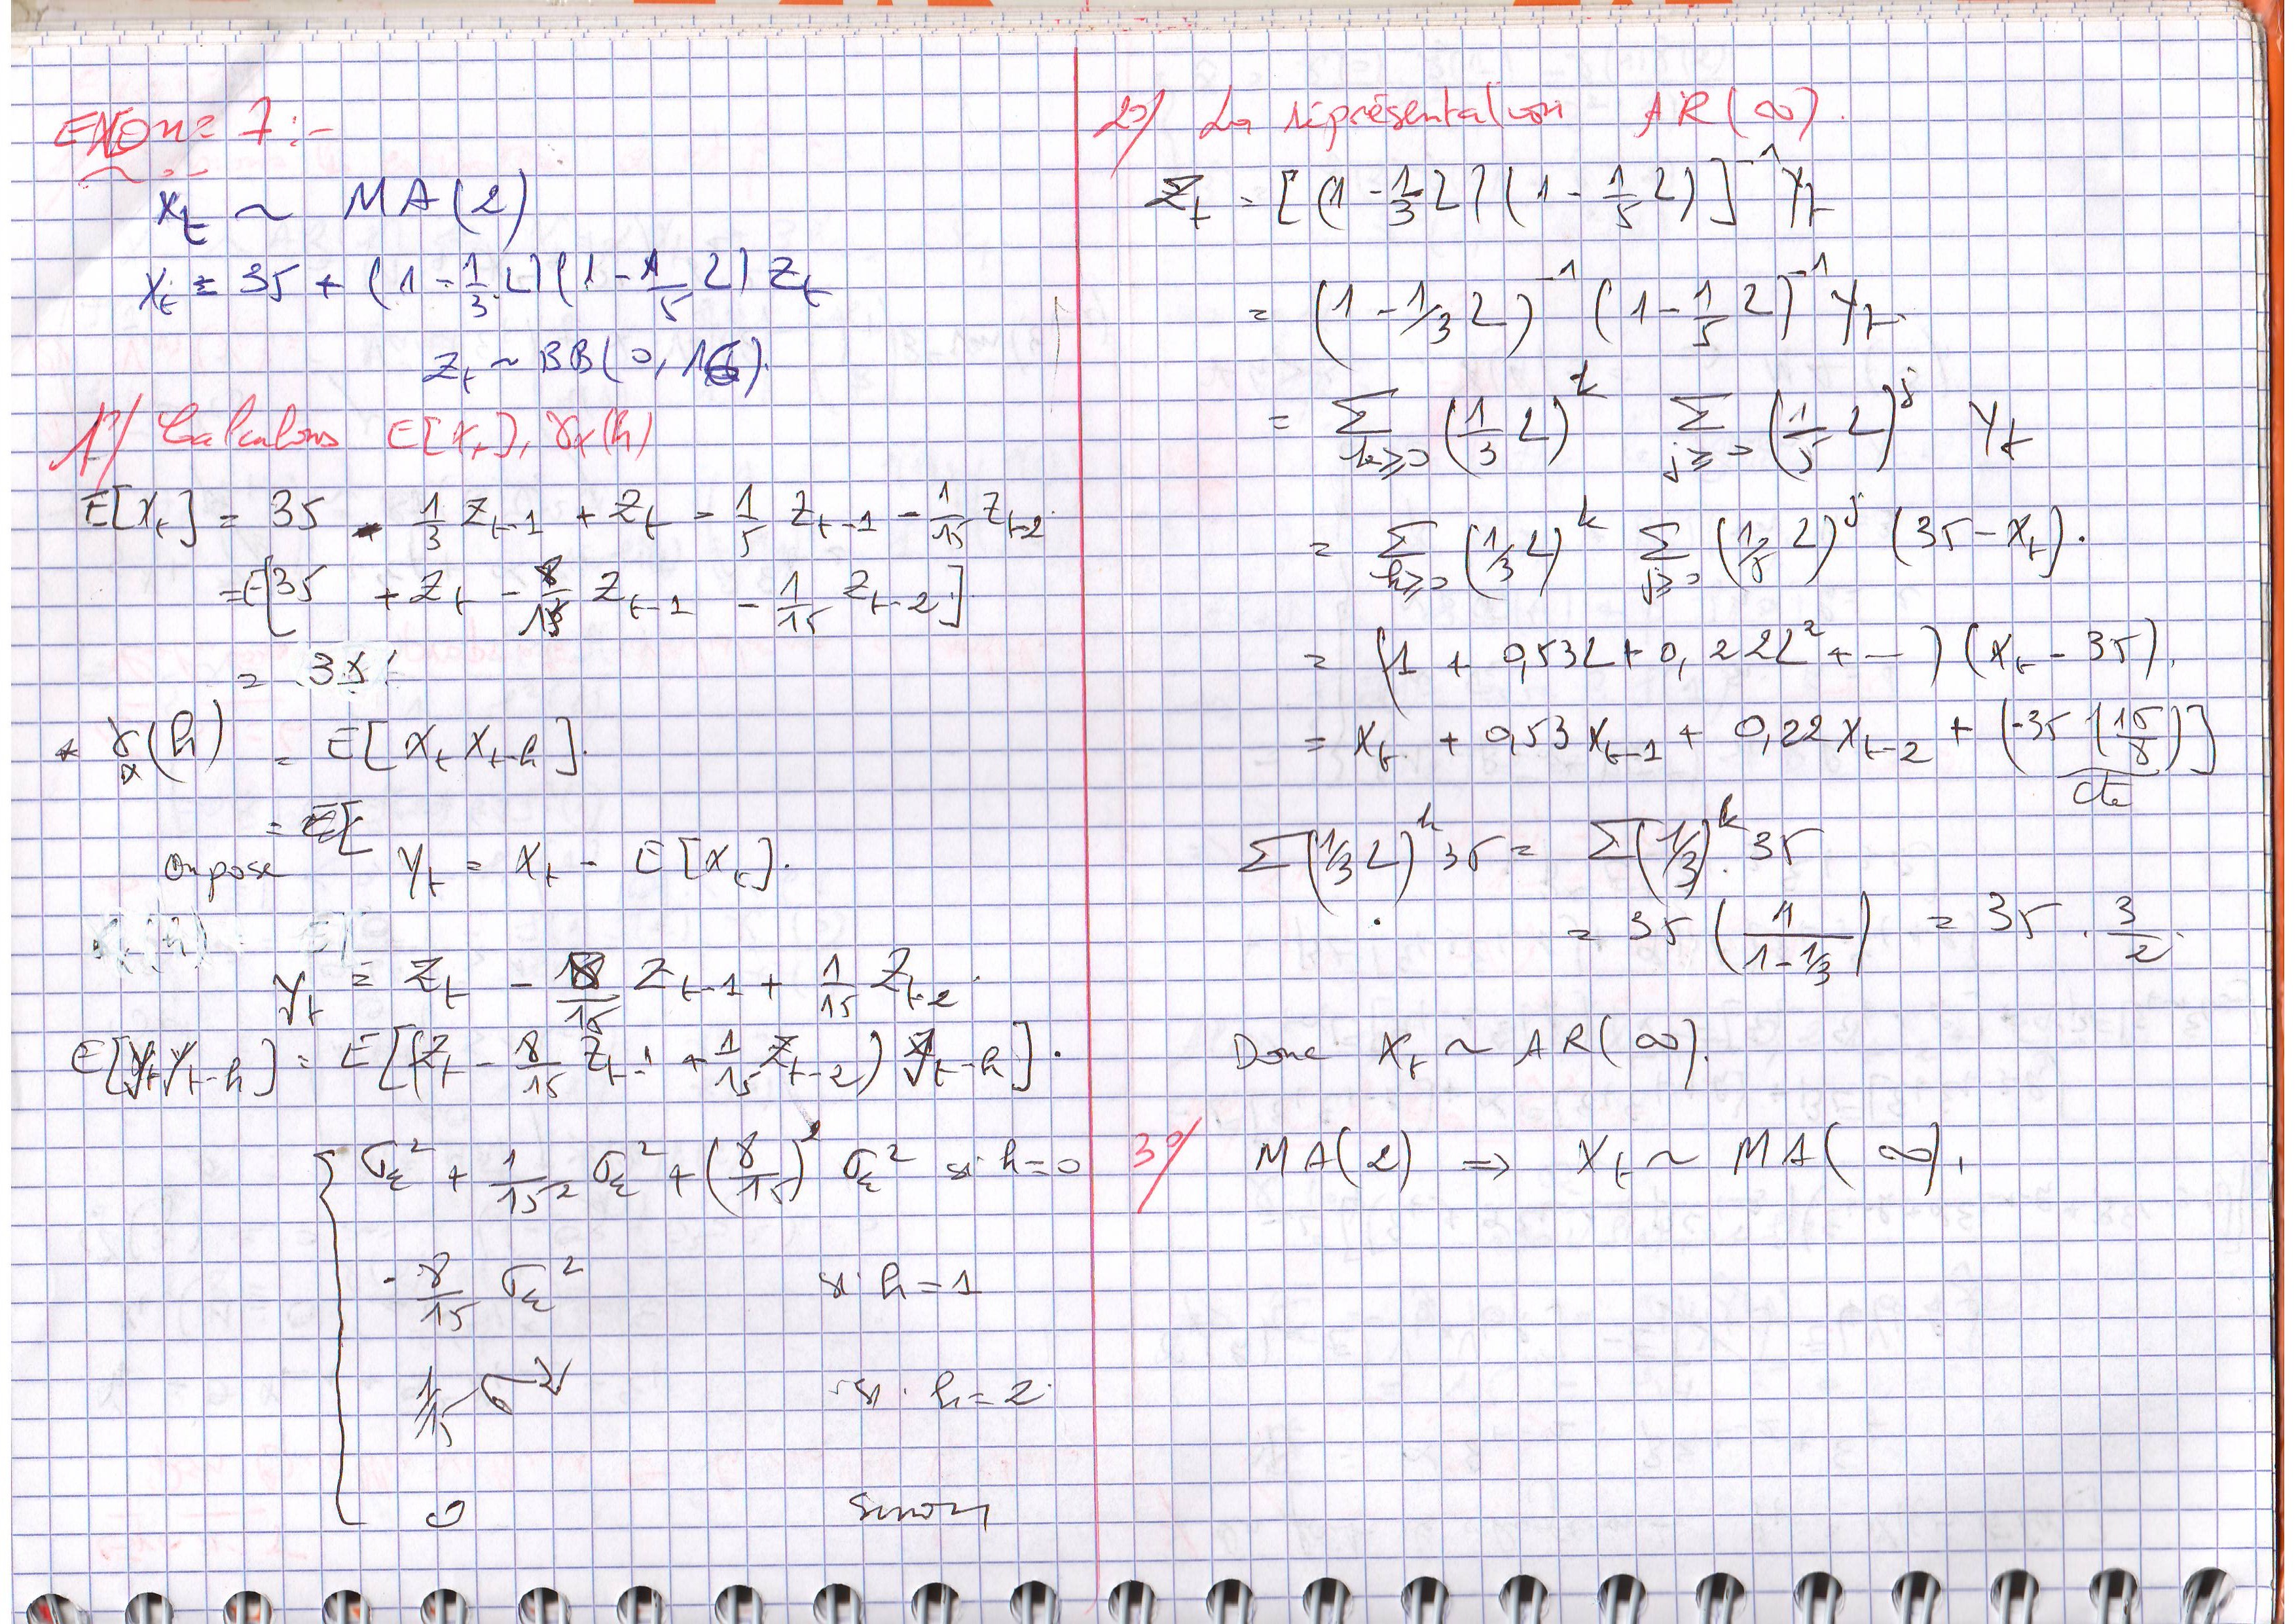 EXON= 7:-
Xt ~ MA(2)
Xt = 35 + (1 - 1/3 L)(1 - 1/5 L) Zt
Zt ~ BB(0, 16).
1°/ Calculons E[Xt], γx(h)
E[Xt] = 35 - 1/3 Zt-1 + Zt - 1/5 Zt-1 - 1/15 Zt-2
= E[35 + Zt - 8/15 Zt-1 - 1/15 Zt-2].
= 35.
* γx(h) = E[Xt Xt-h].
= E[
On pose Yt = Xt - E[Xt].
Yt = Zt - 8/15 Zt-1 + 1/15 Zt-2.
E[Yt Yt-h] = E[(Zt - 8/15 Zt-1 + 1/15 Zt-2) Yt-h].
{ σε² + 1/15² σε² + (8/15)² σε² si h=0
- 8/15 σε² si h=1
1/15 σ² si h=2.
0 sinon
2°/ La réprésentation AR(∞).
Zt = [(1 - 1/3 L)(1 - 1/5 L)]⁻¹ Yt
= (1 - 1/3 L)⁻¹ (1 - 1/5 L)⁻¹ Yt.
= Σ k≥0 (1/3 L)^k Σ j≥0 (1/5 L)^j Yt
= Σ k≥0 (1/3 L)^k Σ j≥0 (1/5 L)^j (35 - Xt).
= (1 + 0,53L + 0,22L² + --) (Xt - 35).
= Xt + 0,53 Xt-1 + 0,22 Xt-2 + (-35 (15/8)]
cte
Σ(1/3 L)^k 35 = Σ(1/3)^k . 35
= 35 (1/(1-1/3)) = 35 . 3/2.
Donc Xt ~ AR(∞).
3°/ MA(2) ⇒ Xt ~ MA(∞).